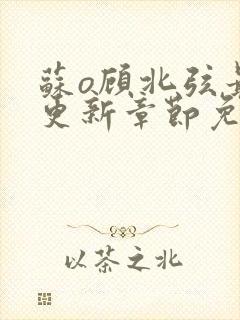 蘇o顾北弦
更新章節免
以茶之北